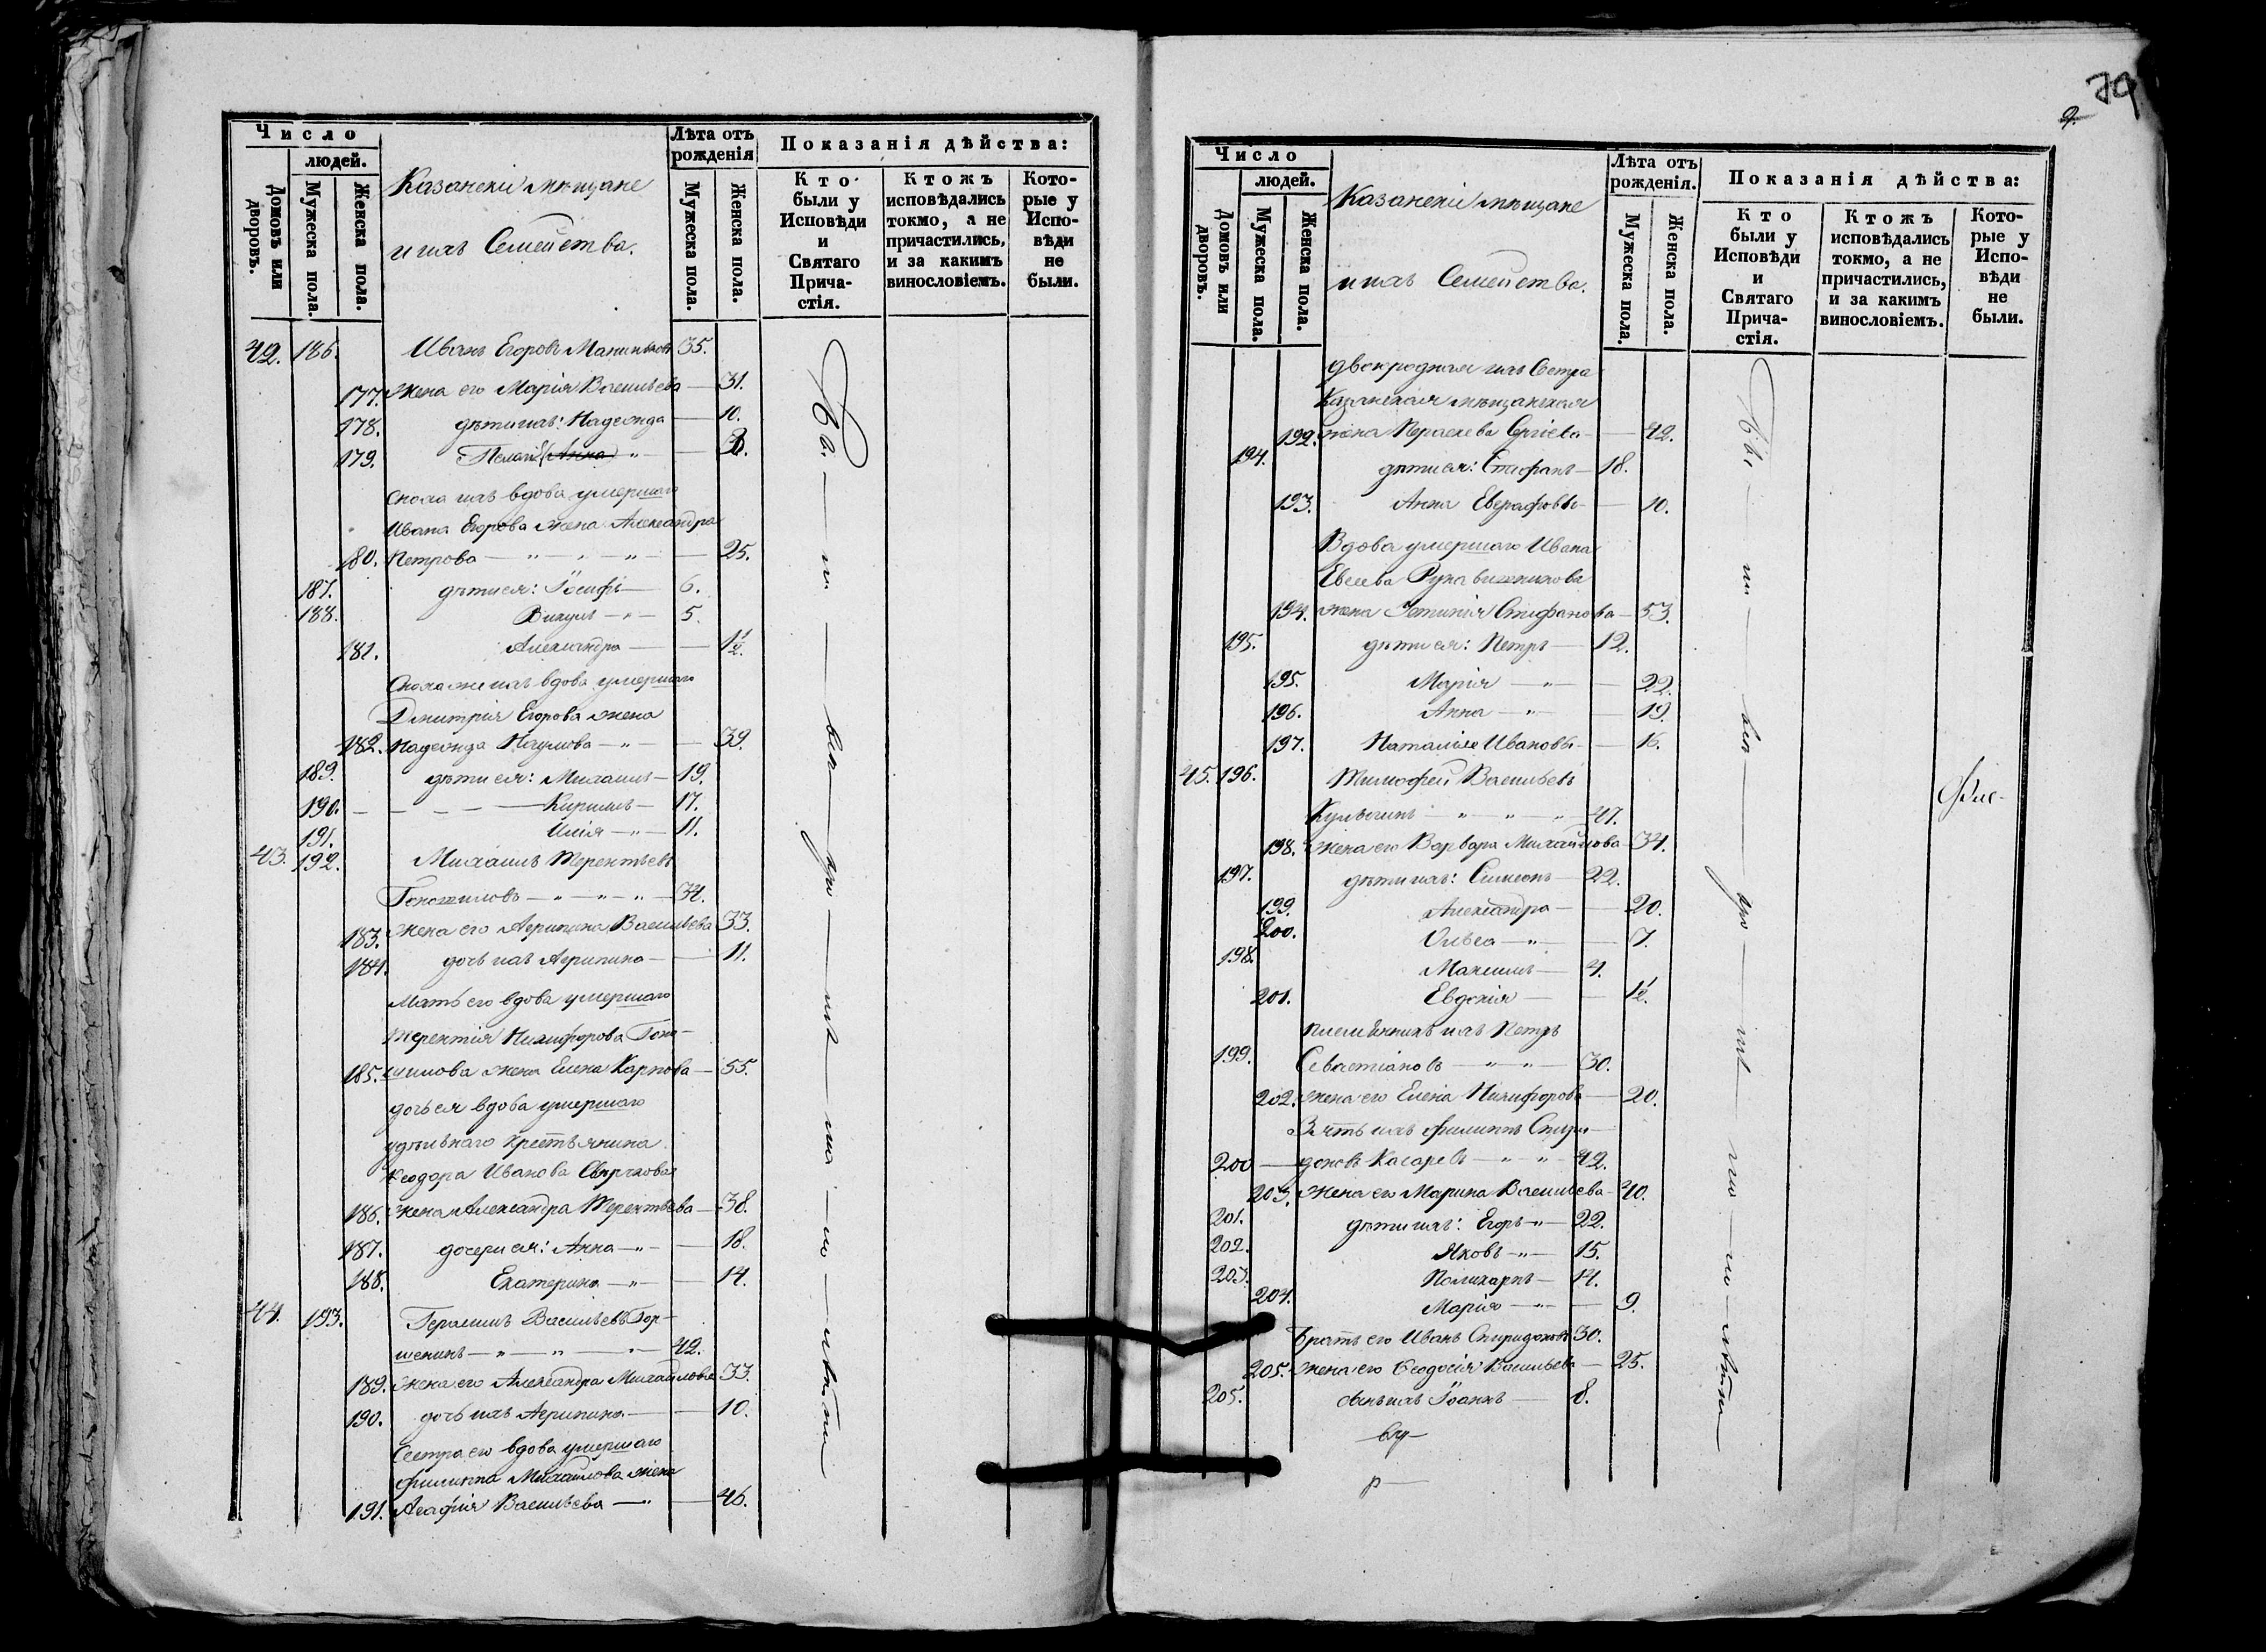 Число
людей.
Домовъ или дворовъ.
Мужеска пола.
Женска пола.
Казанскіе мѣщане
и ихъ Семейства.
Лѣта отъ рожденія
Мужеска пола.
Женска пола.
Показанія дѣйства:
Кто были у Исповѣди и Святаго Прича-стія.
Ктожъ исповѣдались токмо, а не причастились, и за какимъ винословіемъ.
Кото-рые у Испо-вѣди не были.
42. 186. Иванъ Егоровъ 35.
177. Жена его Марія Васильева — 31.
178. дѣти ихъ: Надежда — 10.
179.
Сноха ихъ вдова умершаго
Ивана Егорова жена Александра
180. Петрова — " — " — " — 25.
187. дѣти ея: Іосифъ — 6.
188. Викулъ — " — 5.
181. Александра — 1½.
Сноха же ихъ вдова умершаго
Дмитрія Егорова жена
182. Надежда Наумова — " — 39.
189. дѣти ея: Михаилъ — 19.
190. — Кирилъ — 17.
191. Илія — " — 11.
43. 192. Михаилъ Терентьевъ
Гоношиловъ — " — " — " — 34.
183. Жена его Агрипина Васильева 33.
184. дочь ихъ Агрипина — 11.
Мать его вдова умершаго
Терентія Никифорова Гоно-
185. шилова жена Елена Карпова — 55.
дочь ея вдова умершаго
удѣльнаго крестьянина
Ѳеодора Иванова Свѣрчкова
186. жена Александра Терентьева — 38.
187. дочери ея: Анна — " — 18.
188. Екатерина — " — 14.
44. 193. Герасимъ Васильевъ Гор-
шенинъ — " — " — " — 42.
189. Жена его Александра Михайлова 33.
190. дочь ихъ Агрипина — 10.
Сестра его вдова умершаго
Филиппа Михайлова жена
191. Агафія Васильева — " — 46.
79
Число
людей.
Домовъ или дворовъ.
Мужеска пола.
Женска пола.
Казанскіе мѣщане
и ихъ Семейства.
Лѣта отъ рожденія.
Мужеска пола.
Женска пола.
Показанія дѣйства:
Кто были у Исповѣди и Святаго Прича-стія.
Ктожъ исповѣдались токмо, а не причастились, и за какимъ винословіемъ.
Кото-рые у Испо-вѣди не были.
двоюродная ихъ Сестра
Казанская мѣщанская
192. жена Параскева Сергіева — 42.
194. дѣти ея: Стефанъ — 18.
193. Анна Евграфовы — 10.
Вдова умершаго Ивана
Евсеева Рукавишникова
194. жена Стефанова — 53.
195. дѣти ея: Петръ — 12.
195. Марія — " — 22.
196. Анна — " — 19.
197. Наталія Ивановы — 16.
45. 196. Тимофей Васильевъ
— " — " — " — 47.
198. Жена его Варвара Михайлова — 34.
197. дѣти ихъ: Симеонъ — 22.
199. Александра — 20.
200. Ольга — " — 7.
198. Максимъ — 4.
201. Евдокія — 1½.
племянникъ ихъ Петръ
199. Севастіановъ — " — " — 30.
202. Жена его Елена Никифорова — 20.
Зять ихъ Филиппъ Спири-
200 — доновъ Касаревъ — " — " — 42.
203. Жена его Марина Васильева — 40.
201. дѣти ихъ: Егоръ — " — 22.
202. Яковъ — " — 15.
203. Поликарпъ — 14.
204. Марія — " — 9.
Братъ его Иванъ Спиридоновъ 30.
205. Жена его Ѳеодосія Васильева — 25.
205. Сынъ ихъ Іоаннъ — 8.